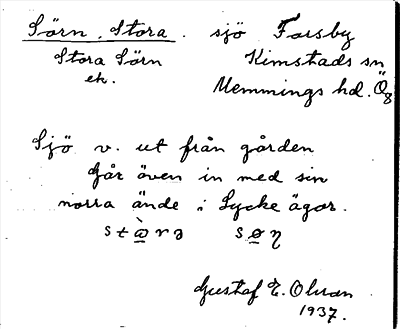 Sörn, Stora. sjö Forsby
Stora Sörn Kimstads sn
ek. Memmings hd. Ög
Sjö v. ut från gården
Går även in med sin
norra ände i Lycke ägor.
Gustaf E. Olvan
1937.